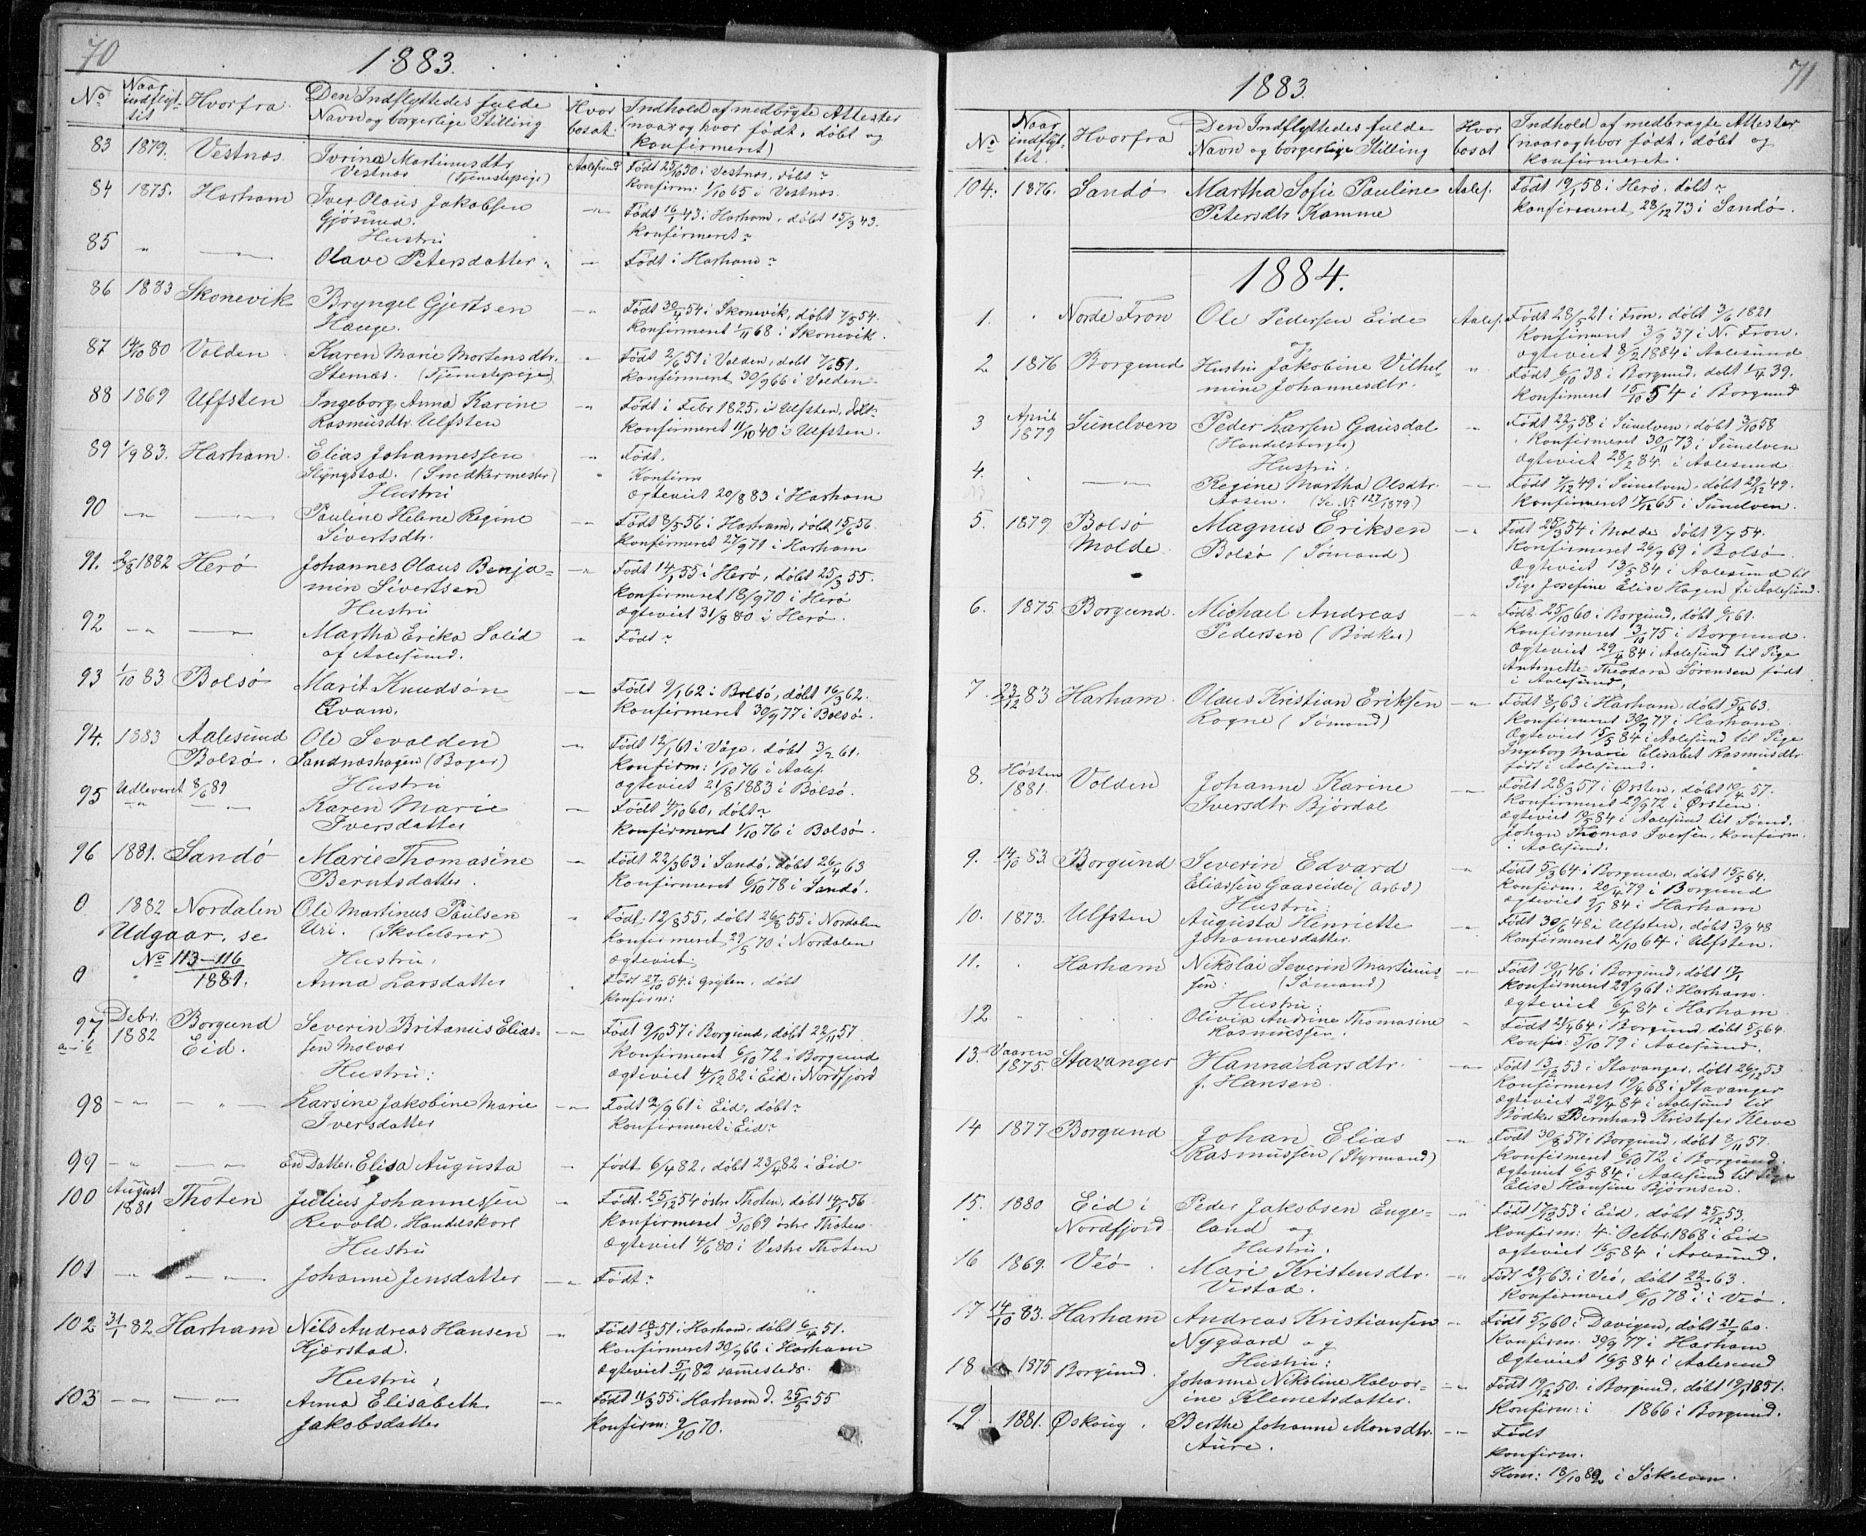 70
1883.
No
Naar indflyt- tit
Hvorfra.
Den Indflyttedes fulde Navn og borgerlige Stilling
Hvor bosat.
Indhold af medbragte Attester (naar og hvor født, døbt og konfirmeret)
83 1879. Vestnæs. Ivrine Martinusdtr Aalesund Født 25/10 50 i Vestnæs, døbt ?
Vestnæs (Tjenestepige) Konfirm: 1/10 65 i Vestnæs.
84 1875. Harham Iver Olaus Jakobsen -"- Født 16/1 43 i Harham, døbt 15/3 43.
Gjøsund. Konfirmeret ?
Hustru
85 " -"- Olave Petersdatter " -"- Født i Harham ?
86 1883 Skonevik Bryngel Gjertsen -"- Født 30/4 54 i Skonevik, døbt 7/5 54.
Hauge. Konfirmeret 1/11 68 i Skonevik.
87 14/10 80 Volden Karen Marie Mortensdtr. -"- Født 2/6 51 i Volden, døbt 7/6 51.
Stenæs. (Tjenestepige) Konfirmeret 30/9 66 i Volden.
88 1869 Ulfsten Ingeborg Anna Karine -"- Født i Febr 1825, i Ulfsten, døbt
Rasmusdtr Ulfsten Konfirmeret 11/10 40 i Ulfsten.
89 1/9 83. Harham. Elias Johannessen -"- Født.
Slyngstad. (Snedkermester) " Konfirm
Hustru Ægteviet 20/8 83 i Harham
90 -"- -"- Pauline Helene Regine -"- Født 8/5 56 i Harham, døbt 15/6 56.
Sivertsdtr. Konfirmeret 27/9 71 i Harham
91. 2/8 1882 Herø Johannes Olaus Benja- -"- Født 14/1 55 i Herø, døbt 25/3 55.
min Sivertsen Konfirmeret 18/9 70 i Herø
Hustru Ægteviet 31/8 80 i Herø.
92 -"- -"- Martha Erika Solid " Født ?
af Aalesund.
93 1/10 83 Bolsø Marit Knudsøn -"- Født 9/1 62 i Bolsø, døbt 16/3 62.
Kvam. Konfirmeret 30/9 77 i Bolsø.
94. 1883 Aalesund Ole Sevalden -"- Født 12/1 61 i Vaage, døbt 3/2 61.
Bolsø. Sandnæshagen (Bager) Konfirm: 1/10 76 i Aales.
Udleveret 8/6 89 Hustru Ægteviet 21/8 1883 i Bolsø.
95 -"- Karen Marie -"- Født 4/10 60, døbt ?
Iversdatter Konfirmeret 1/10 76 i Bolsø.
96 1881. Sandø Marie Thomasine -"- Født 22/3 63 i Sandø, døbt 26/4 63
Berntsdatter. Konfirmeret 6/10 78 i Sandø.
0. 1882 Nordalen Ole Martinus Paulsen " Født 12/8 55, døbt 26/8 55 i Nordalen
Udgaar, se Uri. (Skolelærer) Konfirmeret 29/5 70 i Nordalen
No 113-116 Hustru, Ægteviet
0 " 1881. Anna Larsdatter . Født 27/10 54 i Grytten, døbt
konfirm:
97 Debr. 1882 Borgund Severin Britanus Elias- -"- Født 9/10 57 i Borgund, døbt 22/11 57.
a-b Eid. sen Molvær Konfirmeret 6/10 72 i Borgund
Hustru: Ægteviet 4/12 82 i Eid i Nordfjord
98 -"- " -"- Larsine Jakobine Marie -"- Født 2/9 61 i Eid, døbt ?
Iversdatter Konfirmeret i Eid ?
99 -"- -"- En Datter Elisa Augusta -"- født 6/4 82, døbt 23/4 82 i Eid.
100 August 1881 Thoten Julius Johannessen -"- Født 25/12 54 østre Thoten, døbt 14/1 56
Revold. Handelskarl Konfirmeret 3/10 69 østre Thoten
Hustru Ægteviet 4/6 80 i Vestre Thoten
101 -"- -"- Johanne Jensdatter -"- Født ?
102 31/1 82 Harham Nils Andreas Hansen -"- Født 18/3 51 i Harham, døbt 6/4 51.
Kjærstad. Konfirmeret 30/9 66 i Harham
Hustru, Ægteviet 5/11 82 sammesteds.
103 -"- -"- Anna Elisabeth -"- Født 11/3 55 i Harham d. 25/5 55
Jakobsdatter Konfirm: 2/10 70.
71
1883.
No
Naar indflyt- tit.
Hvorfra
Den Indflyttedes fulde Navn og borgerlige Stilling
Hvor bosat
Indhold af medbragte Attester (naar og hvor født, døbt og konfirmeret.
104. 1876. Sandø Martha Sofie Pauline Aales. Født 19/1 58 i Herø. døbt ?
Petersdtr Kamme Konfirmeret 28/12 73 i Sandø.
1884.
1. " Nordre Fron Ole Pedersen Eide Aales. Født 28/5 21 i Fron, døbt 3/6 1821
og Konfirmeret 3/9 37 i N. Fron.
Ægteviet 8/2 1884 i Aalesund.
2 1876 Borgund Hustru Jakobine Vilhel- " Født 6/10 38 i Borgund, døbt 1/4 39.
mine Johannesdtr. Konfirmeret 15/10 54 i Borgund
3 April 1879 Sunelven Peder Larsen Gausdal -"- Født 22/9 58 i Sunelven, døbt 3/10 58
(Handelsborger) Konfirmeret 30/11 73 i Sunelven
Hustru, Ægteviet 28/2 84 i Aalesund
4. " -"- Regine Martha Olsdtr. -"- Født 7/12 49 i Sunelven, døbt 29/12 49.
Aasen. (Se No 127/1879) Konfirmeret 17/12 65 i Sunelven.
5. 1879 Bolsø Magnus Eriksen -"- Født 25/3 54 i Molde døbt 9/7 54.
Molde. Bolsø (Sømand) Konfirmeret 26/9 69 i Bolsø.
Ægteviet 13/5 84 i Aalesund til
Pige Josefine Elise Hagen f. i Aalesund.
6. 1875 Borgund. Michael Andreas -"- Født 25/10 60 i Borgund, døbt 6/1 61.
Pedersen (Bødker) Konfirmeret 3/10 75 i Borgund.
Ægteviet 29/4 84 i Aalesund til Pige
Antonette Theodora Sørensen født
i Aalesund.
7. 23/12 83 Harham. Olaus Kristian Eriksen -"- Født 8/1 63 i Harham, døbt 5/4 63.
Rogne (Sømand) Konfirmeret 30/9 77 i Harham
Ægteviet 15/5 84 i Aalesund til Pige
Ingeborg Marie Elisabet Rasmusdtr
født i Aalesund.
8. Høsten 1881. Volden Johanne Karine -"- Født 28/3 57 i Ørsten, døbt 19/4 57.
Iversdtr Bjørdal Konfirmeret 29/9 72 i Ørsten.
Ægteviet 19/5 84 i Aalesund til Sømd.
Johan Thomas Iversen, Konfirm.
i Aalesund.
9. 14/10 83. Borgund Severin Edvard " Født 5/3 64 i Borgund, døbt 15/5 64.
Eliassen Gaaseide (Arbd) Konfirm. 20/4 79 i Borgund
Hustru: Ægteviet 2/1 84 i Harham
10. 1873. Ulfsten Augusta Henriette " Født 30/6 48 i Ulfsten, døbt 3/9 48
Johannesdatter. Konfirmeret 2/10 64 i Ulfsten.
11. " Harham Nikolai Severin Martinus- -"- Født 10/11 46 i Borgund, døbt 17/1
sen: (Sømand) Konfirmeret 29/9 61 i Harham.
Hustru: Ægteviet 6/4 84 i Harham.
12 . . Olivia Andrine Thomasine " Født 21/4 64 i Borgund, døbt 5/5 64.
Rasmussen. konfir: 5/10 79 i Aalesund.
13. Vaaren 1875 Stavanger Hanna Larsdtr. -"- Født 13/12 53 i Stavanger, døbt 26/12 53
f. Hansen. Konfirmeret 19/4 68 i Stavanger
Ægteviet 29/4 84 i Aalesund til
Bødker Bernhard Kristofer Kleve
14 1877 Borgund Johan Elias -"- Født 30/8 57 i Borgund, døbt 8/11 57.
Rasmussen (Styrmand) Konfirmeret 6/10 72 i Borgund.
Ægteviet 6/5 84 i Aalesund til Pige
Elise Hansine Bjørnsen.
15. 1880 Eid i Peder Jakobsen Enge- -"- Født 17/12 53 i Eid, døbt 25/12 53,
Nordfjord land og Konfirm: 4 Oktbr 1868 i Eid
Hustru: Ægteviet 16/5 84 i Aalesund.
16 1869. Veø . Mari Kristensdtr. " Født 29/1 63, i Veø, døbt 22/3 63.
Vestad. Konfirmeret 6/10 78 i Veø.
17 14/10 83. Harham Andreas Kristiansen " Født 5/7 60 i Davigen, døbt 21/7 60.
Nygaard og Konfirm. 30/9 77 i Harham
Hustru: Ægteviet 16/5 84 i Aalesund
18 1875 Borgund. Johanne Nikoline Halvor- -"- Født 19/12 50. i Borgund, døbt 19/1 1851.
ine Klemetsdatter. Konfirm: i 1866 i Borgund.
19 1881. Ørskoug. Berthe Johanne Monsdtr. -"- Født
Aure. konfirm.
Kom: 18/10 82 i Søkelven.